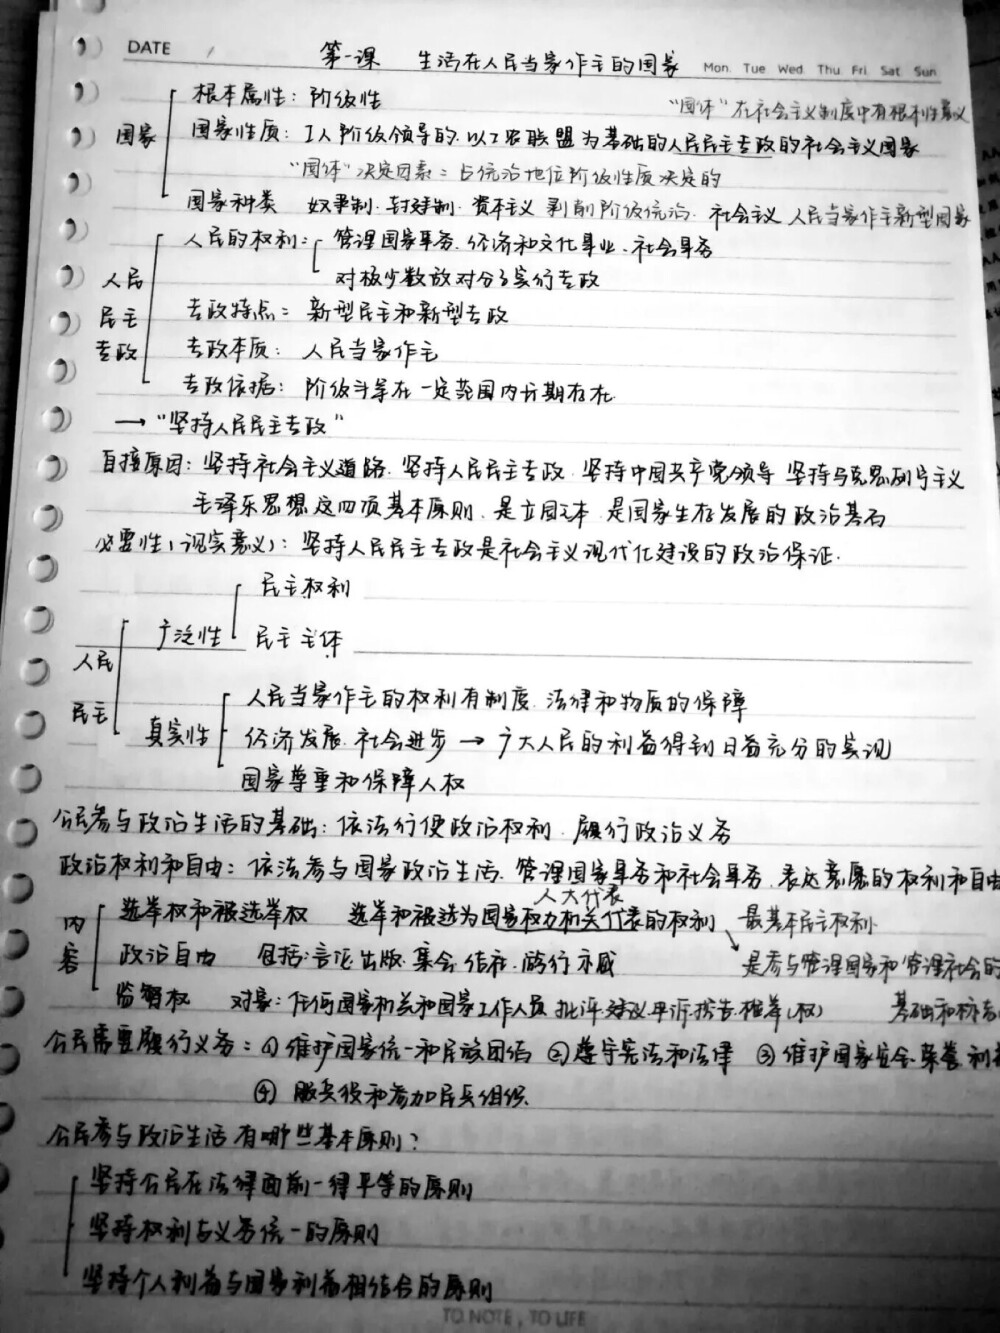 DATE /
第一课 生活在人民当家作主的国家 Mon. Tue. Wed. Thu. Fri. Sat. Sun.
根本属性：阶级性
"国体"在社会主义制度中有根本性意义
国家
国家性质：工人阶级领导的.以工农联盟为基础的人民民主专政的社会主义国家
"国体"决定因素：占统治地位阶级性质决定的
国家种类 奴隶制.封建制.资本主义 剥削阶级统治. 社会主义 人民当家作主新型国家
人民民主专政
人民的权利：管理国家事务.经济和文化事业.社会事务
对极少数敌对分子实行专政
专政特点：新型民主和新型专政
专政本质：人民当家作主
专政依据：阶级斗争在一定范围内长期存在
→"坚持人民民主专政"
直接原因：坚持社会主义道路.坚持人民民主专政.坚持中国共产党领导 坚持马克思列宁主义
毛泽东思想这四项基本原则.是立国之本.是国家生存发展的政治基石
必要性(现实意义)：坚持人民民主专政是社会主义现代化建设的政治保证.
人民民主
广泛性
民主权利
民主主体
真实性
人民当家作主的权利有制度.法律和物质的保障
经济发展.社会进步→广大人民的利益得到日益充分的实现
国家尊重和保障人权
公民参与政治生活的基础：依法行使政治权利.履行政治义务
政治权利和自由：依法参与国家政治生活.管理国家事务和社会事务.表达意愿的权利和自由
内容
人大代表
选举权和被选举权 选举和被选为国家权力机关代表的权利 最基本民主权利.
政治自由 包括:言论.出版.集会.结社.游行示威
是参与管理国家和管理社会的
监督权 对象：任何国家机关和国家工作人员 批评.建议.申诉.控告.检举(权)
基础和标志
公民需要履行义务：①维护国家统一和民族团结 ②遵守宪法和法律 ③维护国家安全.荣誉.利益
④服兵役和参加民兵组织.
公民参与政治生活有哪些基本原则？
坚持公民在法律面前一律平等的原则
坚持权利与义务统一的原则
坚持个人利益与国家利益相结合的原则
TO NOTE , TO LIFE